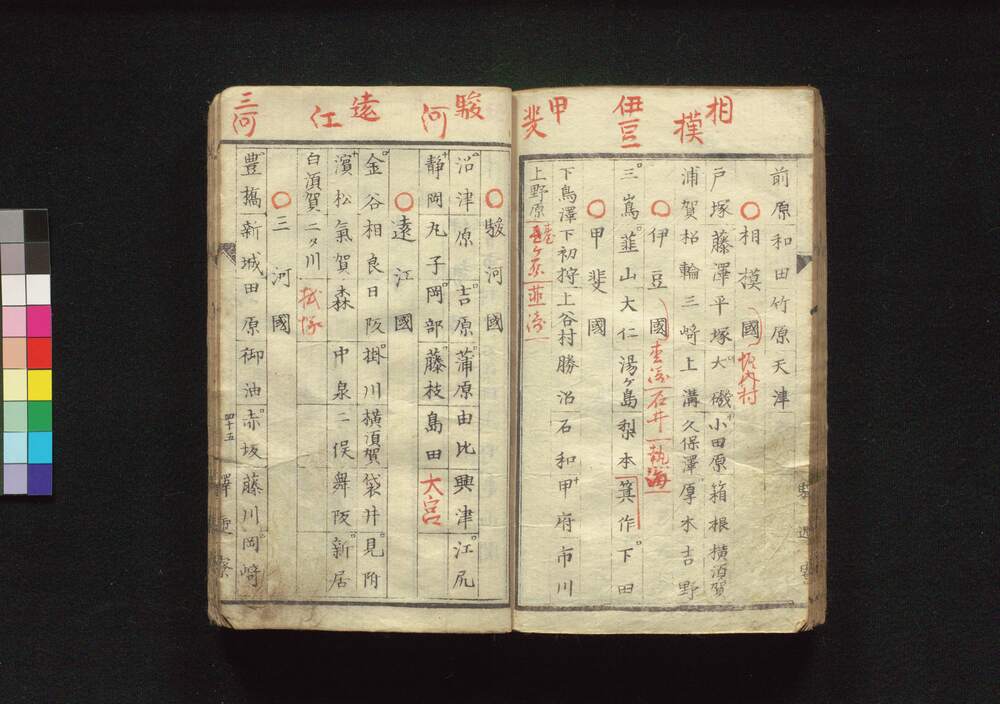 相模
伊豆
甲斐
前原和田竹原天津
○相模國
坂内村
戸塚藤澤平塚大磯小田原箱根横須賀
浦賀松輪三崎上溝久保澤厚木吉野
○伊豆國
石井
熱海
三嶌韮山大仁湯ヶ島梨本箕作下田
○甲斐國
下鳥澤下初狩上谷村勝沼石和甲府市川
上野原
韮
駿河
遠江
三河
○駿河國
沼津原吉原蒲原由比興津江尻
静岡丸子岡部藤枝島田
大宮
○遠江國
金谷相良日阪掛川横須賀袋井見附
濱松氣賀森中泉二俣舞阪新居
白須賀二タ川
○三河國
豊橋新城田原御油赤坂藤川岡崎
四十五
驛逓寮